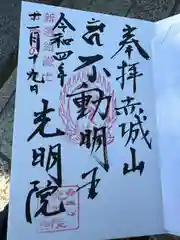 奉拝
赤城山
不動明王
光明院
令和四年
十一月十九日